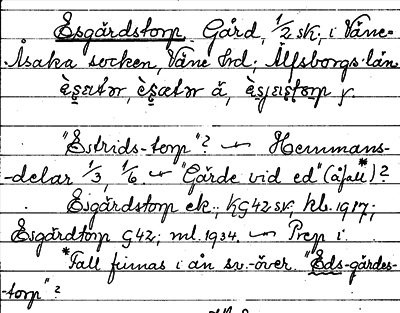 Esgärdstorp. Gård, 1/2 sk; i Väne-
Åsaka socken, Väne hd; Älfsborgs län.
"Estrids-torp"? ~ Hemmans-
-delar 1/3, 1/6. ~ "Gärde vid ed" (åfall*)?
Esgärdstorp ek.; KG42 sv; hl. 1917;
Esgärdtorp G42; ml. 1934. ~ Prep i.
*Fall finnas i ån sv.-över. "Eds-gärdes-
-torp"?